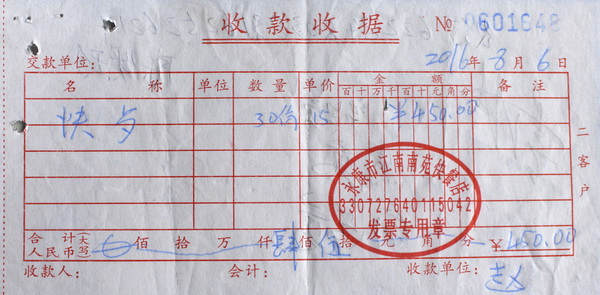 收款收据 № 0601648
交款单位: 2016年8月6日
名称 单位 数量 单价 金额 备注
百十万千百十元角分
快歺 30份 15 ¥450.00
二客户
永康市江南南苑快餐店
330727640115042
发票专用章
合计人民币(大写) 佰拾万仟肆佰伍拾元角分 ¥450.00
收款人: 会计: 收款单位: